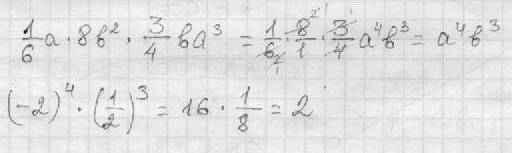 1/6 a · 8b² · 3/4 ba³ = 1/6 · 8/1 · 3/4 a⁴b³ = a⁴b³
(-2)⁴ · (1/2)³ = 16 · 1/8 = 2